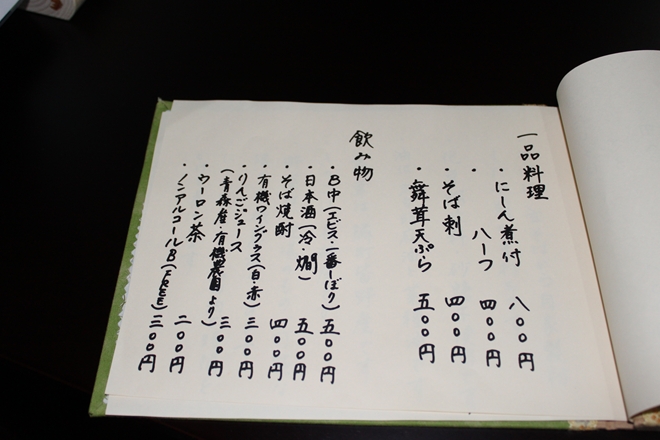 一品料理
・にしん煮付 八〇〇円
・ハーフ 四〇〇円
・そば刺 四〇〇円
・舞茸天ぷら 五〇〇円
飲み物
・B中(エビス・一番しぼり) 五〇〇円
・日本酒(冷・燗) 五〇〇円
・そば焼酎 四〇〇円
・有機ワイングラス(白・赤) 三〇〇円
・りんごジュース
(青森産・有機農園より) 三〇〇円
・ウーロン茶 二〇〇円
・ノンアルコールB(FREE) 三〇〇円